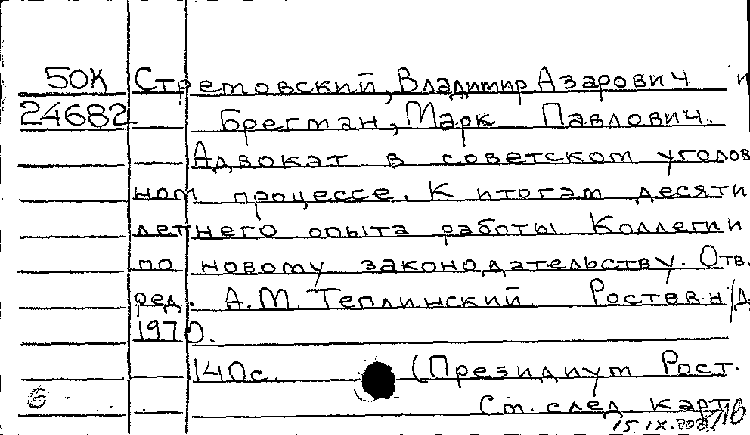 50К Стремовский, Владимир Азарович и
24682 Брегман, Марк Павлович.
Адвокат в советском уголов
ном процессе. К итогам десяти
летнего опыта работы Коллегии
по новому законодательству. Отв.
ред. А.М. Теплинский Ростов н/Д
1970.
140с. (Президиум Рост.
См. след карт
15.IX.70г.